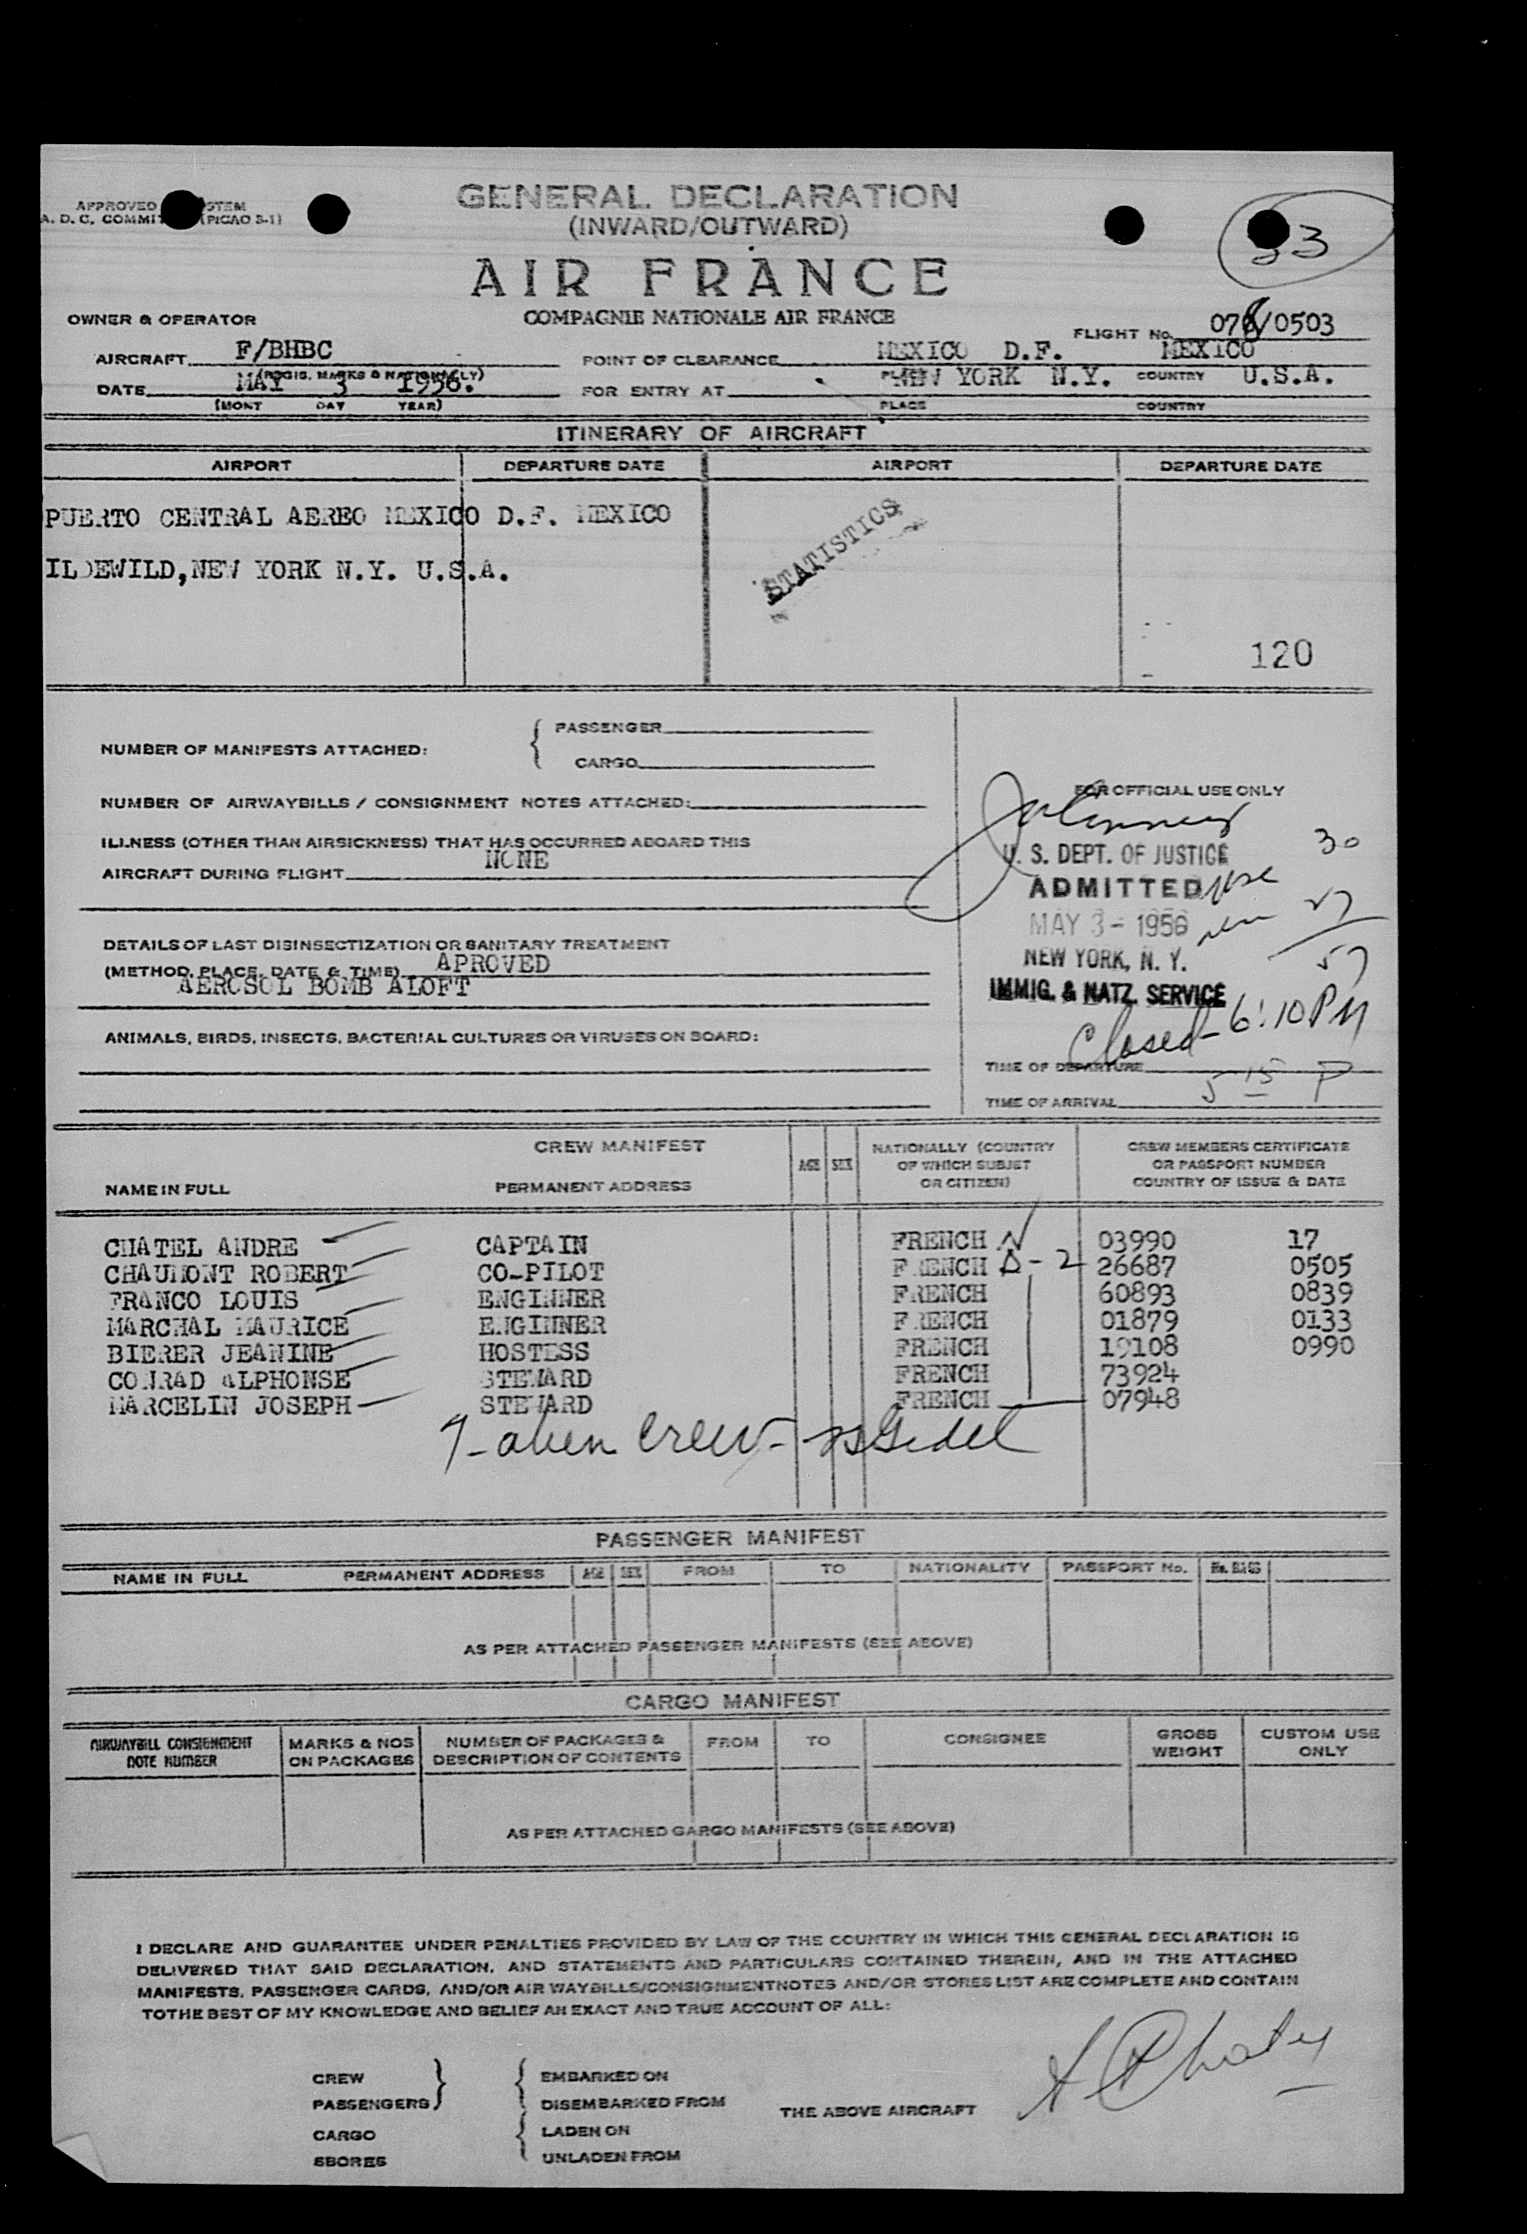 GENERAL DECLARATION
(INWARD/OUTWARD)
APPROVED STEM
A. D. C. COMMIT (PICAO 3-1)
33
AIR FRANCE
COMPAGNIE NATIONALE AIR FRANCE
OWNER & OPERATOR
FLIGHT No. 076/0503
AIRCRAFT F/BHBC
(REGIS. MARKS & NATIONALLY)
POINT OF CLEARANCE MEXICO D.F. MEXICO
PLACE COUNTRY
DATE MAY 3 1956.
(MONT DAY YEAR)
FOR ENTRY AT NEW YORK N.Y. U.S.A.
PLACE COUNTRY
ITINERARY OF AIRCRAFT
AIRPORT DEPARTURE DATE AIRPORT DEPARTURE DATE
PUERTO CENTRAL AEREO MEXICO D.F. MEXICO
STATISTICS
ILDEWILD,NEW YORK N.Y. U.S.A.
120
NUMBER OF MANIFESTS ATTACHED:
PASSENGER
CARGO
NUMBER OF AIRWAYBILLS / CONSIGNMENT NOTES ATTACHED:
ILLNESS (OTHER THAN AIRSICKNESS) THAT HAS OCCURRED ABOARD THIS
AIRCRAFT DURING FLIGHT NONE
DETAILS OF LAST DISINSECTIZATION OR SANITARY TREATMENT
(METHOD, PLACE, DATE & TIME) APROVED
AEROSOL BOMB ALOFT
ANIMALS, BIRDS, INSECTS, BACTERIAL CULTURES OR VIRUSES ON BOARD:
FOR OFFICIAL USE ONLY
U. S. DEPT. OF JUSTICE
30
ADMITTED
27
MAY 3 - 1956
57
NEW YORK, N. Y.
IMMIG. & NATZ. SERVICE
Closed - 6:10 PM
TIME OF DEPARTURE
5 15 P
TIME OF ARRIVAL
CREW MANIFEST
NAME IN FULL PERMANENT ADDRESS AGE SEX NATIONALLY (COUNTRY
OF WHICH SUBJET
OR CITIZEN)
CREW MEMBERS CERTIFICATE
OR PASSPORT NUMBER
COUNTRY OF ISSUE & DATE
CHATEL ANDRE CAPTAIN FRENCH 03990 17
CHAUMONT ROBERT CO-PILOT FRENCH D-2 26687 0505
FRANCO LOUIS ENGINNER FRENCH 60893 0839
MARCHAL MAURICE ENGINNER FRENCH 01879 0133
BIERER JEANINE HOSTESS FRENCH 19108 0990
CONRAD ALPHONSE STEWARD FRENCH 73924
MARCELIN JOSEPH STEWARD FRENCH 07948
7 - alien crew -
PASSENGER MANIFEST
NAME IN FULL PERMANENT ADDRESS AGE SEX FROM TO NATIONALITY PASSPORT No. No. BAGS
AS PER ATTACHED PASSENGER MANIFESTS (SEE ABOVE)
CARGO MANIFEST
AIRWAYBILL CONSIGNMENT
NOTE NUMBER
MARKS & NOS
ON PACKAGES
NUMBER OF PACKAGES &
DESCRIPTION OF CONTENTS
FROM TO CONSIGNEE
GROSS
WEIGHT
CUSTOM USE
ONLY
AS PER ATTACHED GARGO MANIFESTS (SEE ABOVE)
I DECLARE AND GUARANTEE UNDER PENALTIES PROVIDED BY LAW OF THE COUNTRY IN WHICH THIS GENERAL DECLARATION IS
DELIVERED THAT SAID DECLARATION, AND STATEMENTS AND PARTICULARS CONTAINED THEREIN, AND IN THE ATTACHED
MANIFESTS, PASSENGER CARDS, AND/OR AIR WAYBILLS/CONSIGNMENTNOTES AND/OR STORES LIST ARE COMPLETE AND CONTAIN
TOTHE BEST OF MY KNOWLEDGE AND BELIEF AN EXACT AND TRUE ACCOUNT OF ALL:
CREW
PASSENGERS
CARGO
SBORES
EMBARKED ON
DISEMBARKED FROM
LADEN ON
UNLADEN FROM
THE ABOVE AIRCRAFT